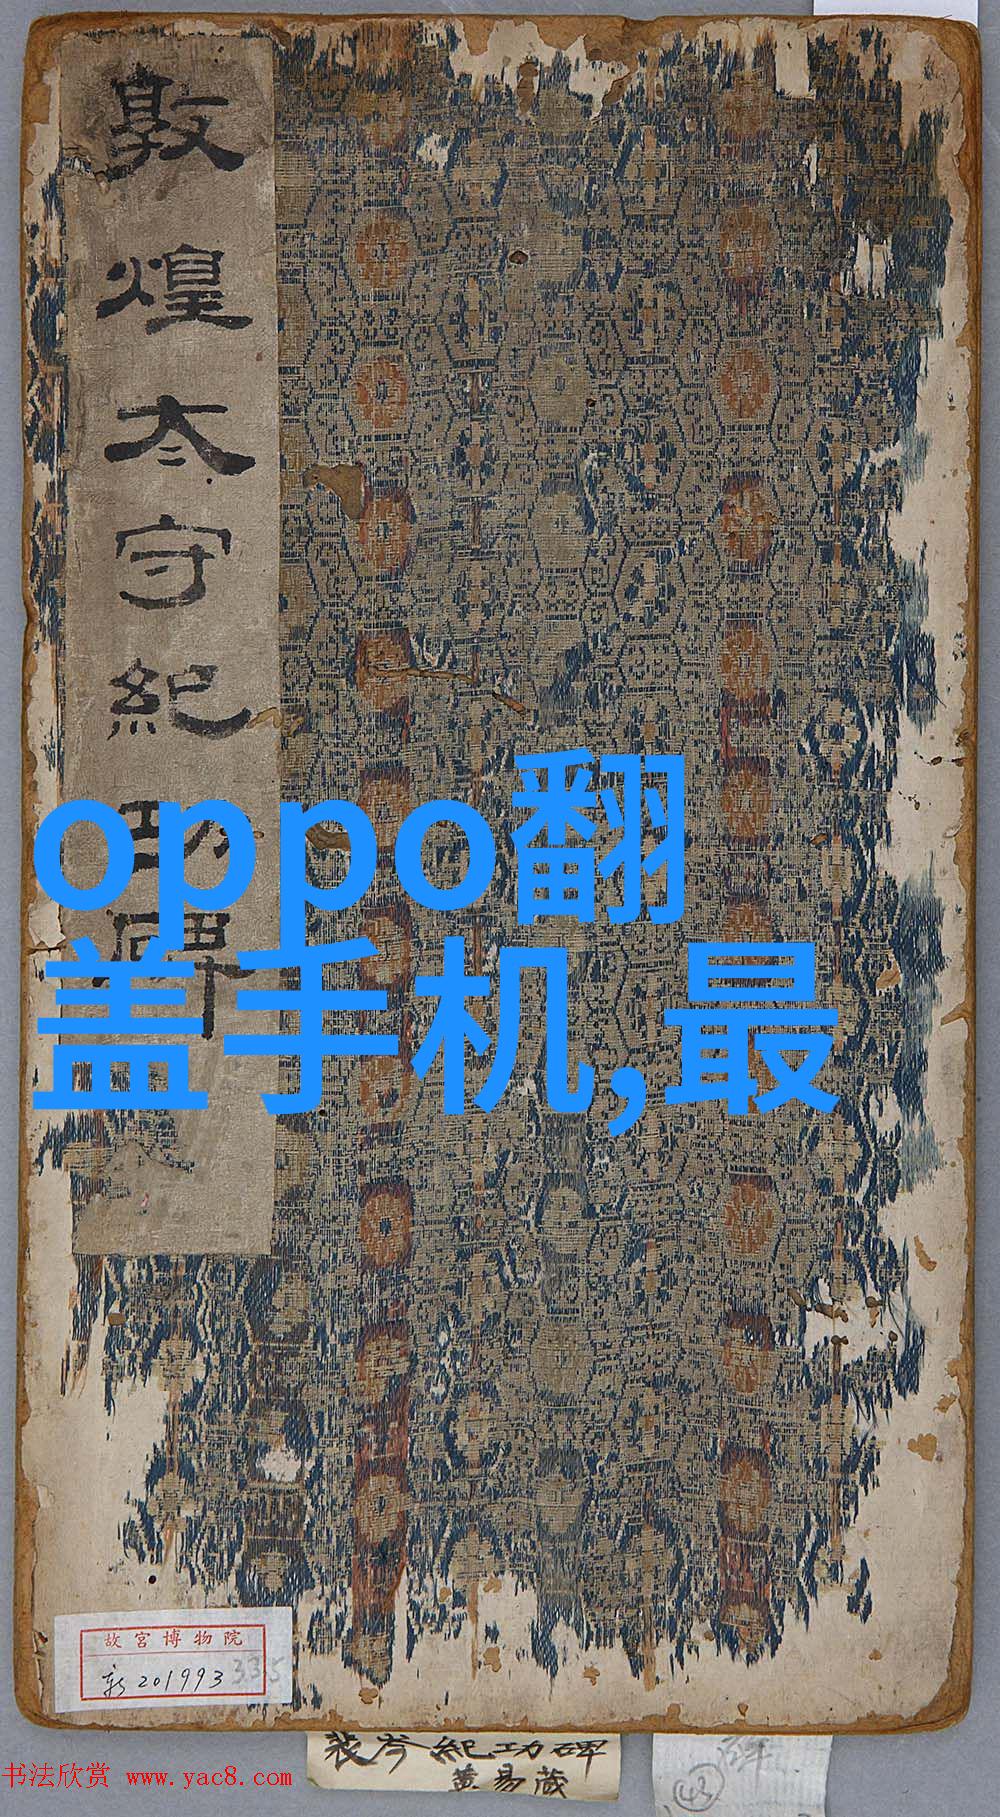 敦煌太守紀功碑
oppo翻
盖手机,最
故宫博物院
新201993
335
裴岑紀功碑
黄易藏
(43)
书法欣赏 www.yac8.com